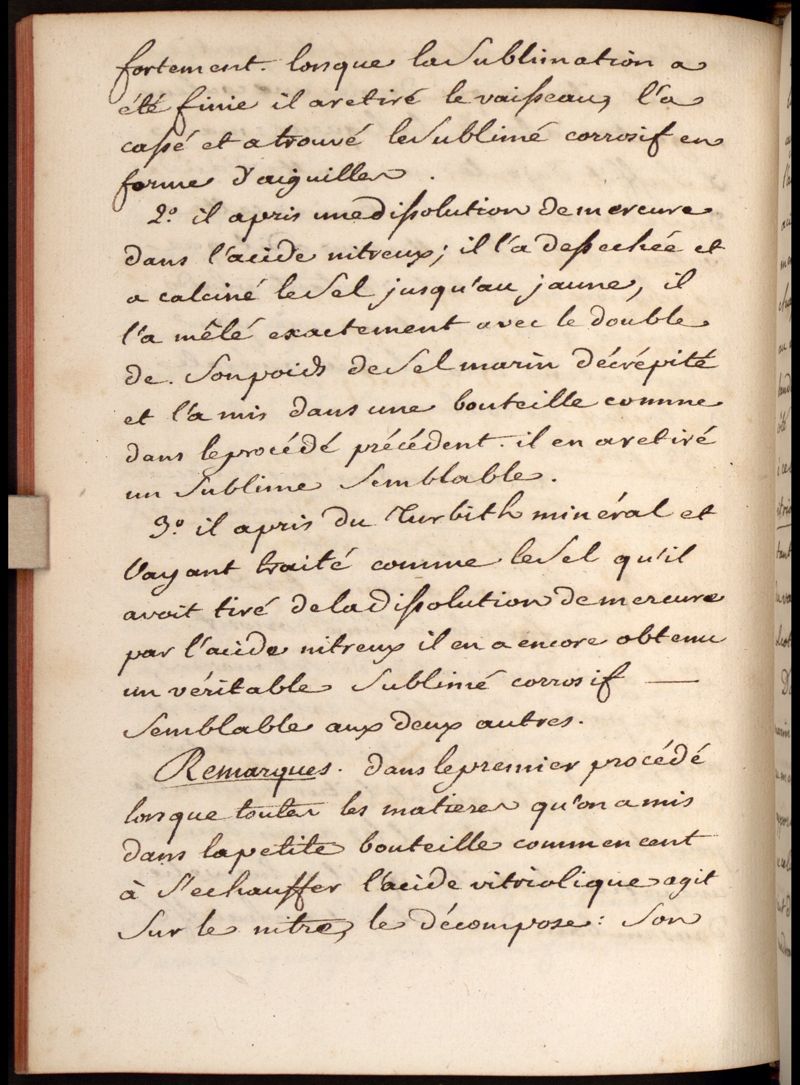 fortement. lorsque la Sublimation a
été finie il a retiré le vaisseau, l'a
cassé et a trouvé le Sublimé corrosif en
forme d'aiguilles.
2.° il a pris une dissolution de mercure
dans l'acide nitreux; il l'a dessechée et
a calciné le Sel jusqu'au jaune, il
l'a mêlé exactement avec le double
de. Son poids de Sel marin décrépité
et l'a mis dans une bouteille comme
dans le procédé précédent. il en a retiré
un Sublimé Semblable.
3.° il a pris du Turbith minéral et
l'ayant traité comme le Sel qu'il
avoit tiré de la dissolution de mercure
par l'acide nitreux il en a encore obtenu
un véritable Sublimé corrosif —
Semblable aux deux autres.
Remarques. dans le premier procédé
lorsque toutes les matieres qu'on a mis
dans la petite bouteille commencent
à S'echauffer l'acide vitriolique agit
Sur le nitre, le décompose: Son